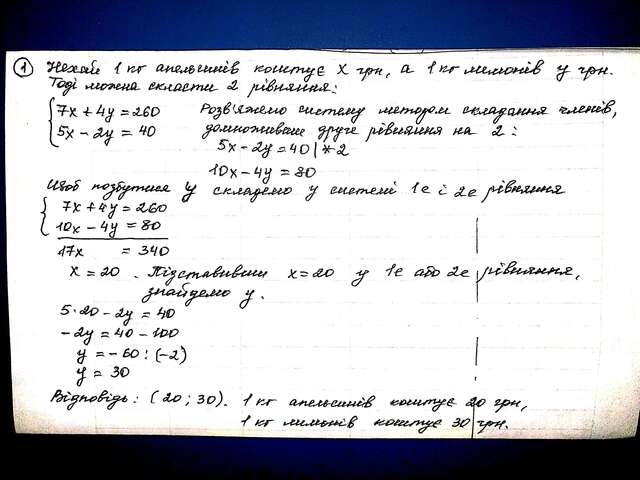 1 Нехай 1 кг апельсинів коштує x грн, а 1 кг лимонів y грн.
Тоді можна скласти 2 рівняння:
7x + 4y = 260 Розв'яжемо систему методом складання членів,
5x - 2y = 40 домноживши друге рівняння на 2:
5x - 2y = 40 | *2
10x - 4y = 80
Щоб позбутися y складемо у системі 1е і 2е рівняння
7x + 4y = 260
10x - 4y = 80
17x = 340
x = 20. Підставивши x = 20 у 1е або 2е рівняння,
знайдемо y.
5·20 - 2y = 40
-2y = 40 - 100
y = -60 : (-2)
y = 30
Відповідь: (20; 30). 1 кг апельсинів коштує 20 грн,
1 кг лимонів коштує 30 грн.